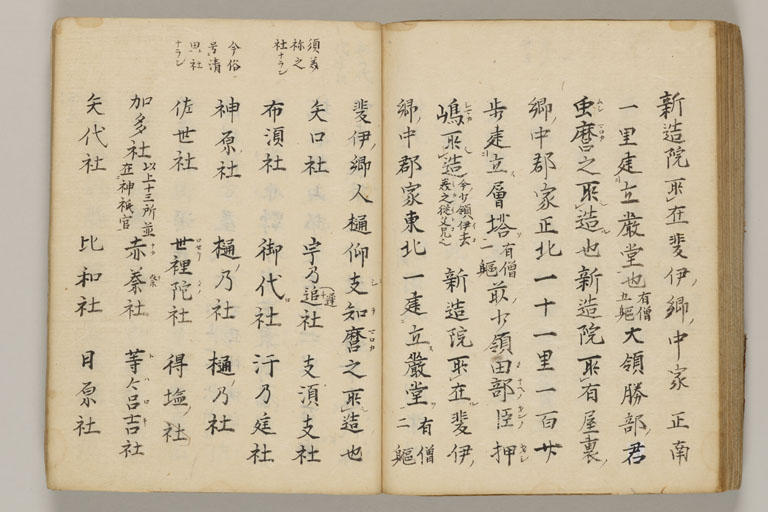 新造院所在斐伊郷中家正南
一里建立巌堂也有僧五軀大領勝部君
虫麿之所造也新造院所有屋裏
郷中郡家正北一十一里一百廿
歩建立層塔有僧二軀前少領田部臣押
嶋所造今少領伊去美之従父兄也新造院所在斐伊
郷中郡家東北一建立巌堂有僧二軀
斐伊郷人樋仰支知麿之所造也
須美祢之社ナラン
矢口社 宇乃追社 支須支社
布須社 御代社 汙乃庭社
今俗号清思社ナラン
神原社 樋乃社 樋乃社
佐世社 世裡陀社 得塩社
加多社以上十三所並在神祇官 赤秦社 等々呂吉社
矢代社 比和社 日原社